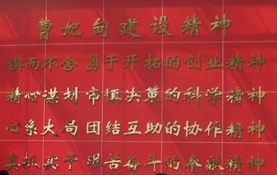 曹妃甸建设精神
锲而不舍 勇于开拓的创业精神
精心谋划 审慎决策的科学精神
心系大局 团结互助的协作精神
真抓实干 艰苦奋斗的奉献精神